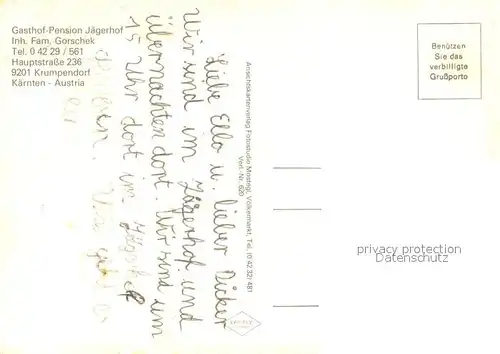 Gasthof-Pension Jägerhof
Inh. Fam. Gorschek
Tel. 0 42 29 / 561
Hauptstraße 236
9201 Krumpendorf
Kärnten - Austria
Benützen
Sie das
verbilligte
Grußporto
Liebe Ella u. lieber Dicker
Wir sind im Jägerhof und
übernachten dort. Wir sind um
15 Uhr dort im
Ansichtskartenverlag Fotostudio Mostegl, Völkermarkt, Tel. (0 42 32) 481
Verl.-Nr. 620
privacy protection
Datenschutz